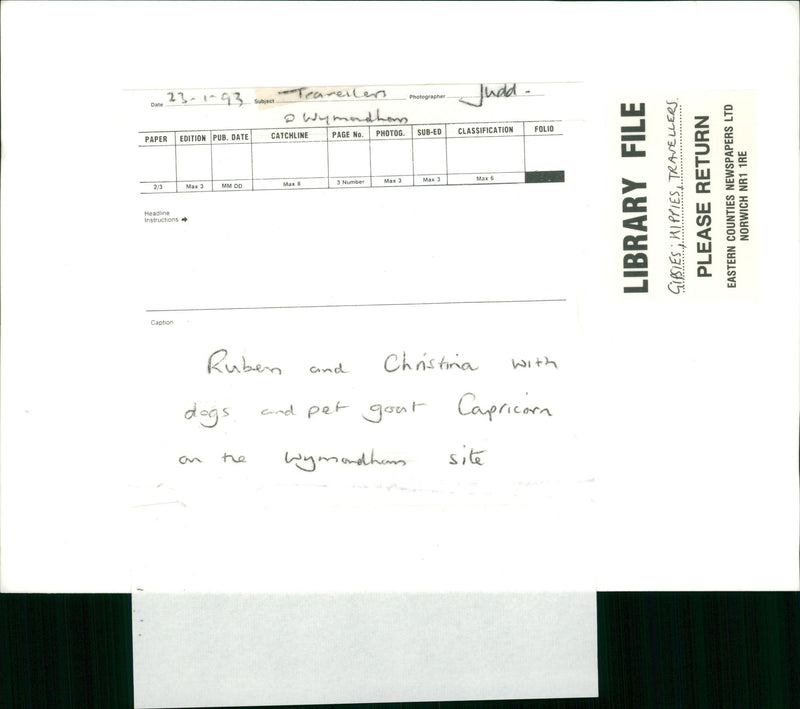 Date 23-1-93 Subject Travellers Photographer Judd.
@ Wymondham
PAPER EDITION PUB. DATE CATCHLINE PAGE No. PHOTOG. SUB-ED CLASSIFICATION FOLIO
2/3 Max 3 MM DD Max 8 3 Number Max 3 Max 3 Max 6
Headline
Instructions →
Caption
Ruben and Christina with
dogs and pet goat Capricorn
on the Wymondham site
LIBRARY FILE
GIPSIES; HIPPIES, TRAVELLERS.
PLEASE RETURN
EASTERN COUNTIES NEWSPAPERS LTD
NORWICH NR1 1RE